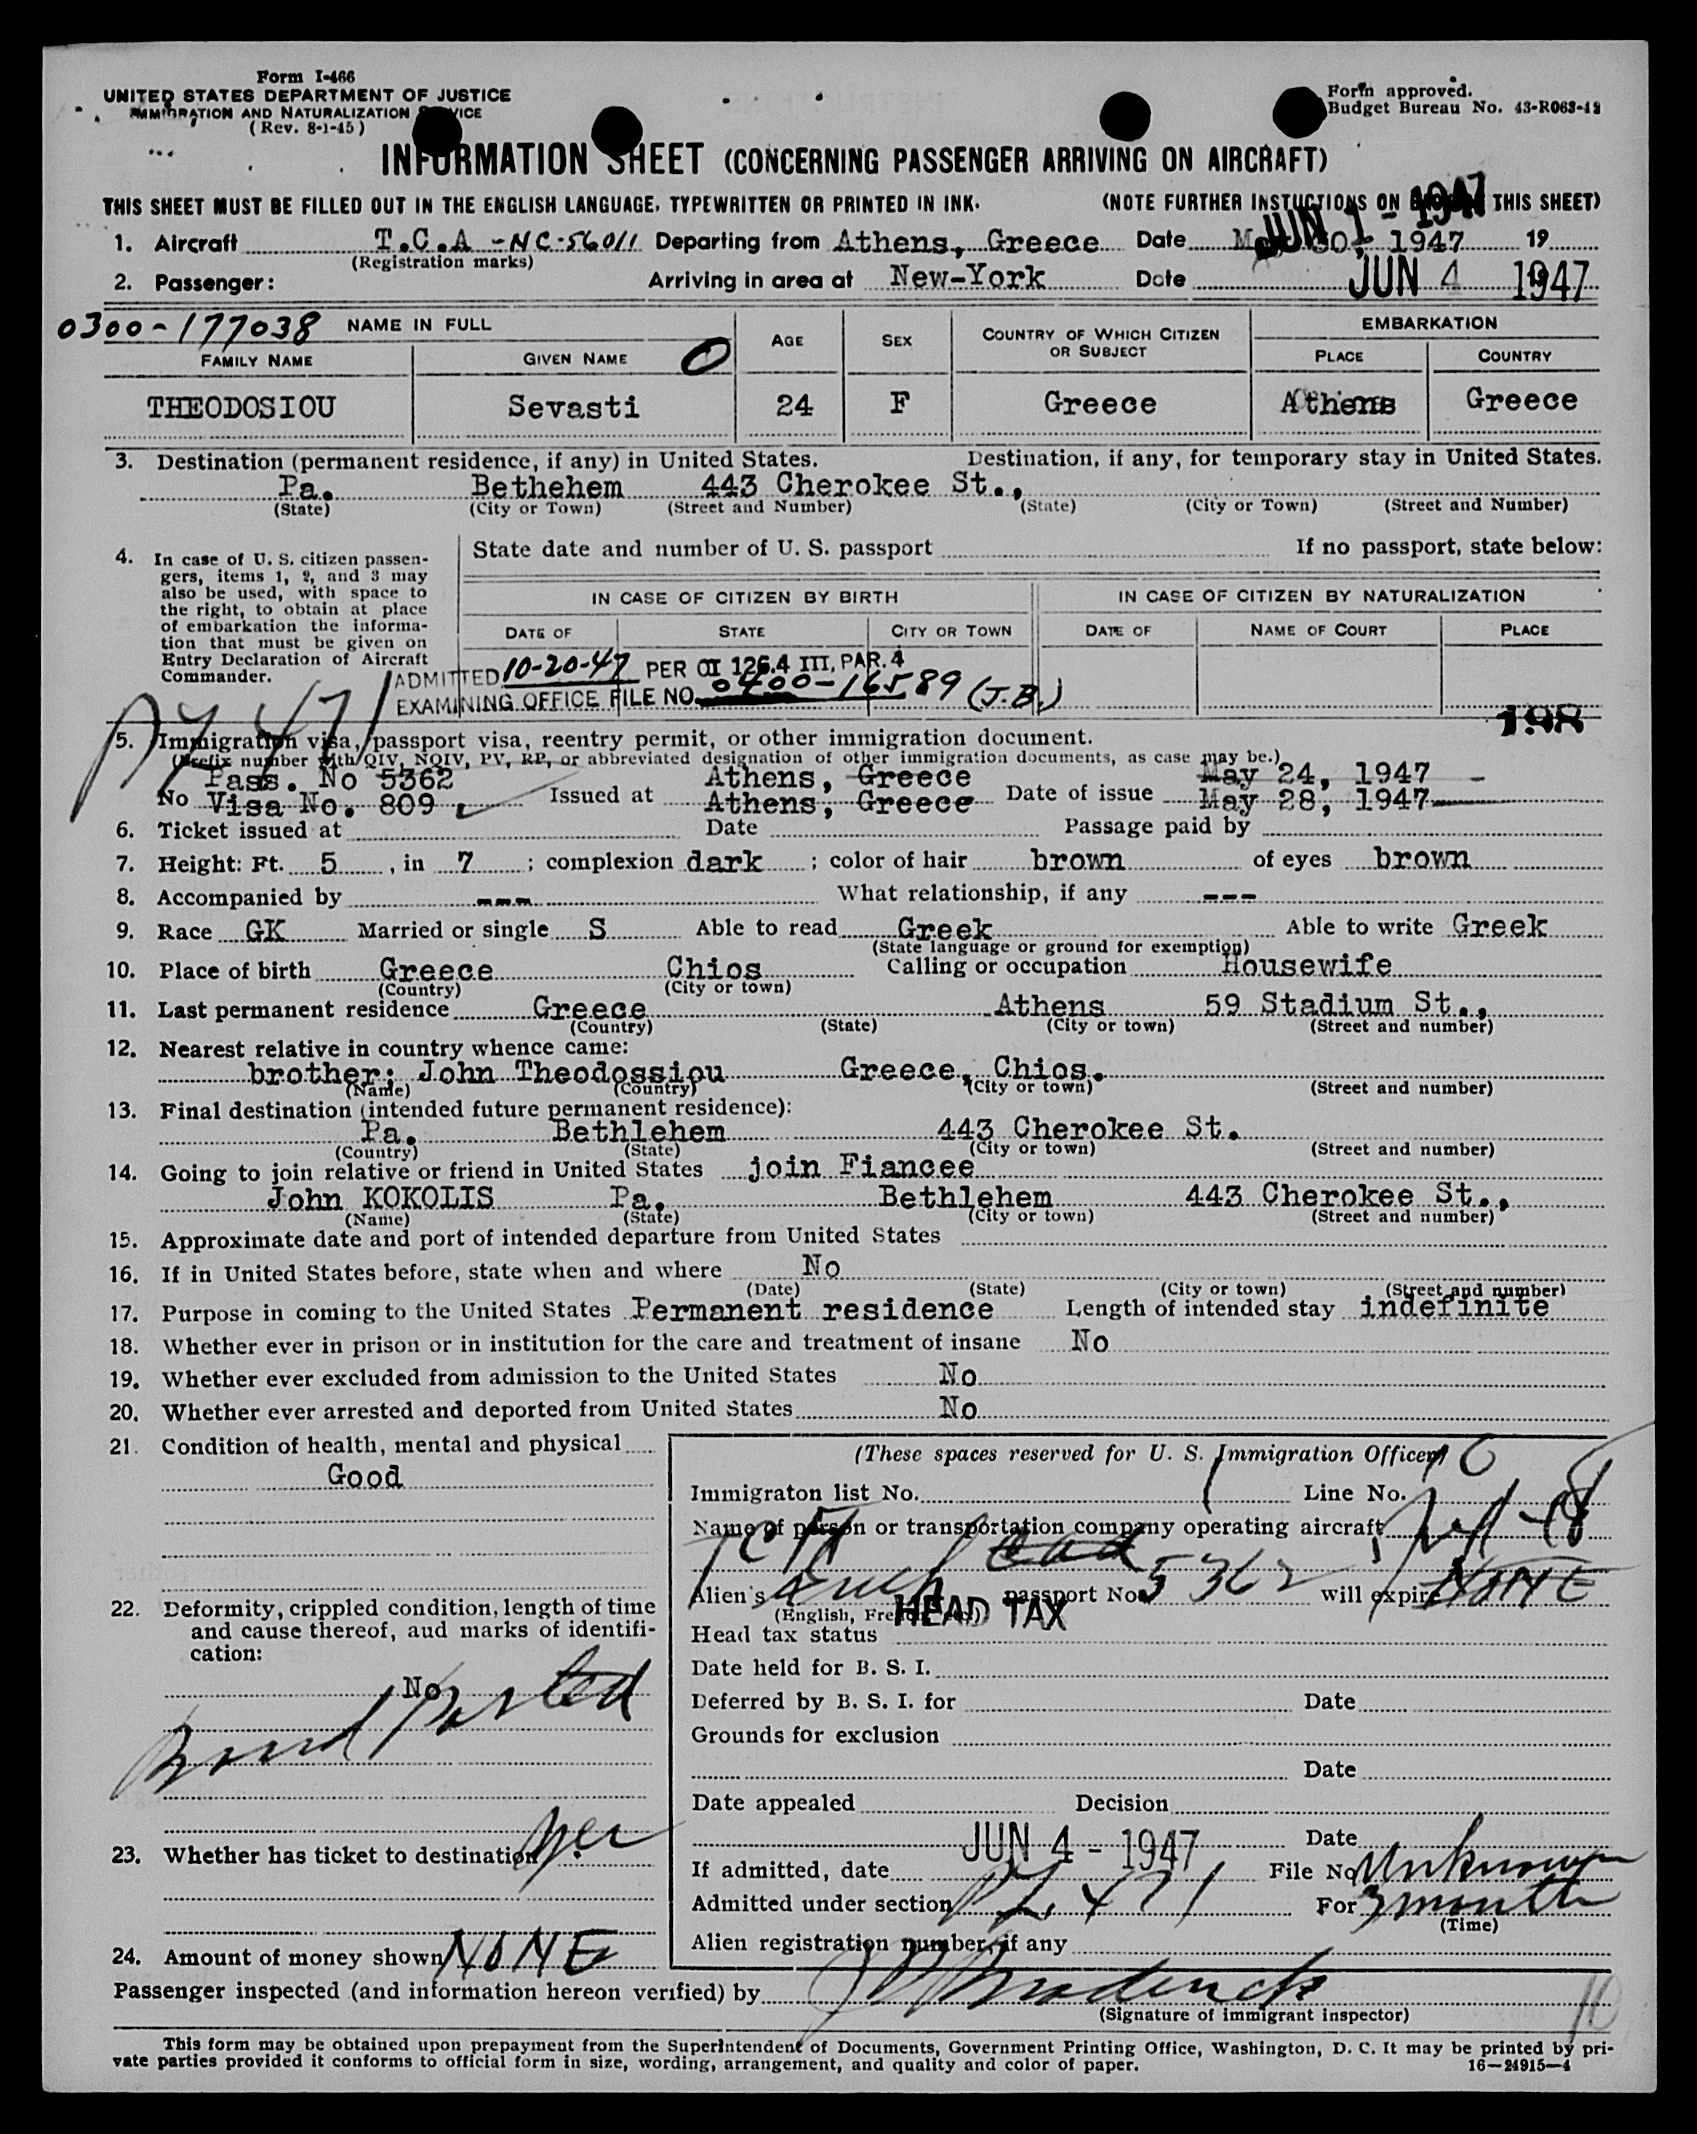 Form I-466
UNITED STATES DEPARTMENT OF JUSTICE
IMMIGRATION AND NATURALIZATION SERVICE
(Rev. 8-1-45)
Form approved.
Budget Bureau No. 43-R063-42
INFORMATION SHEET (CONCERNING PASSENGER ARRIVING ON AIRCRAFT)
THIS SHEET MUST BE FILLED OUT IN THE ENGLISH LANGUAGE, TYPEWRITTEN OR PRINTED IN INK.
(NOTE FURTHER INSTUCTIONS ON THIS SHEET)
JUN 1 - 1947
1. Aircraft T.C.A -NC-56011 Departing from Athens, Greece Date 30, 1947 19
(Registration marks)
2. Passenger: Arriving in area at New-York Date JUN 4 1947
0300-177038 NAME IN FULL AGE SEX COUNTRY OF WHICH CITIZEN OR SUBJECT EMBARKATION
FAMILY NAME GIVEN NAME O PLACE COUNTRY
THEODOSIOU Sevasti 24 F Greece Athens Greece
3. Destination (permanent residence, if any) in United States. Destination, if any, for temporary stay in United States.
Pa. Bethehem 443 Cherokee St.,
(State) (City or Town) (Street and Number) (State) (City or Town) (Street and Number)
4. In case of U. S. citizen passen-
gers, items 1, 2, and 3 may
also be used, with space to
the right, to obtain at place
of embarkation the informa-
tion that must be given on
Entry Declaration of Aircraft
Commander.
State date and number of U. S. passport If no passport, state below:
IN CASE OF CITIZEN BY BIRTH IN CASE OF CITIZEN BY NATURALIZATION
DATE OF STATE CITY OR TOWN DATE OF NAME OF COURT PLACE
ADMITTED 10-20-47 PER OI 126.4 III, PAR. 4
EXAMINING OFFICE FILE NO. 0400-16589 (J.B.)
PL 471
198
5. Immigration visa, passport visa, reentry permit, or other immigration document.
(Prefix number with QIV, NQIV, PV, RP, or abbreviated designation of other immigration documents, as case may be.)
Pass. No 5362 Athens, Greece May 24, 1947
No Visa No. 809 Issued at Athens, Greece Date of issue May 28, 1947
6. Ticket issued at Date Passage paid by
7. Height: Ft. 5, in 7; complexion dark; color of hair brown of eyes brown
8. Accompanied by --- What relationship, if any ---
9. Race GK Married or single S Able to read Greek Able to write Greek
(State language or ground for exemption)
10. Place of birth Greece Chios Calling or occupation Housewife
(Country) (City or town)
11. Last permanent residence Greece Athens 59 Stadium St.,
(Country) (State) (City or town) (Street and number)
12. Nearest relative in country whence came:
brother: John Theodossiou Greece, Chios.
(Name) (Country) (City or town) (Street and number)
13. Final destination (intended future permanent residence):
Pa. Bethlehem 443 Cherokee St.
(Country) (State) (City or town) (Street and number)
14. Going to join relative or friend in United States join Fiancee
John KOKOLIS Pa. Bethlehem 443 Cherokee St.,
(Name) (State) (City or town) (Street and number)
15. Approximate date and port of intended departure from United States
16. If in United States before, state when and where No
(Date) (State) (City or town) (Street and number)
17. Purpose in coming to the United States Permanent residence Length of intended stay indefinite
18. Whether ever in prison or in institution for the care and treatment of insane No
19. Whether ever excluded from admission to the United States No
20. Whether ever arrested and deported from United States No
21. Condition of health, mental and physical
Good
22. Deformity, crippled condition, length of time
and cause thereof, and marks of identifi-
cation:
No
Bond Posted
23. Whether has ticket to destination Yes
24. Amount of money shown NONE
(These spaces reserved for U. S. Immigration Officer)
Immigraton list No. 1 Line No.
Name of person or transportation company operating aircraft
TCA
Alien's passport No. 5362 will expire
(English, French, etc.)
HEAD TAX
Head tax status
Date held for B. S. I.
Deferred by B. S. I. for Date
Grounds for exclusion
Date
Date appealed Decision
Date
If admitted, date JUN 4 - 1947 File No. Unknown
Admitted under section PL 471 For 3 months
(Time)
Alien registration number, if any
Passenger inspected (and information hereon verified) by
(Signature of immigrant inspector)
10
This form may be obtained upon prepayment from the Superintendent of Documents, Government Printing Office, Washington, D. C. It may be printed by pri-
vate parties provided it conforms to official form in size, wording, arrangement, and quality and color of paper. 16—24915-4